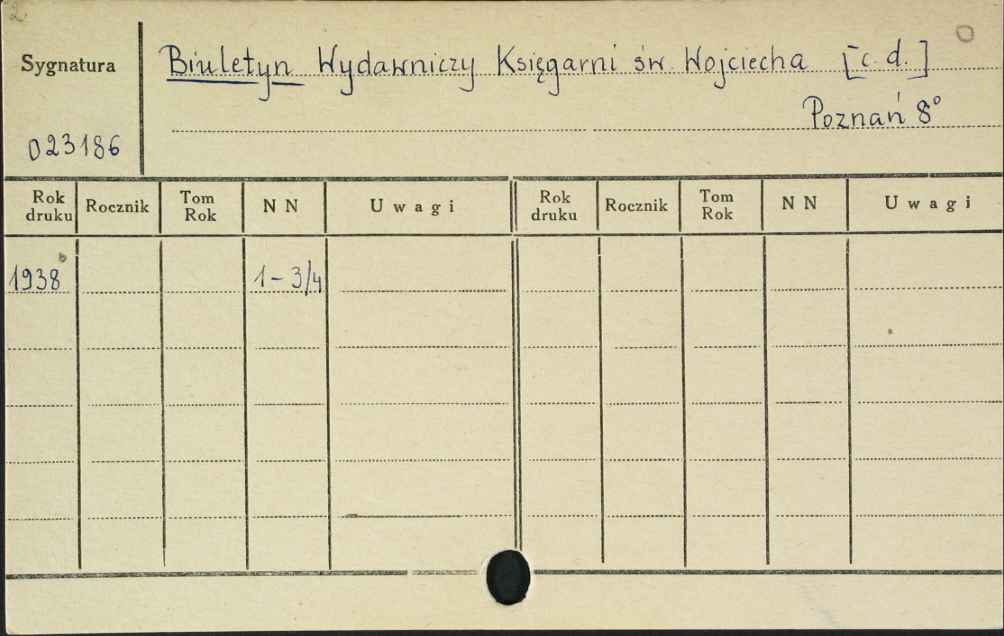 2
Sygnatura
Biuletyn Wydawniczy Księgarni św. Wojciecha [c. d.]
Poznań 8°
023186
Rok druku Rocznik Tom Rok N N Uwagi Rok druku Rocznik Tom Rok N N Uwagi
1938 1-3/4